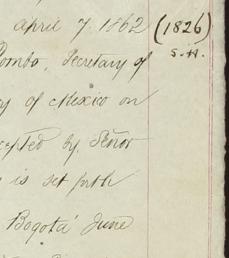 april 7. 1862 (1826)
S.H.
Pombo, Secretary of
y of Mexico on
cepted by Señor
is set forth
Bogotá June